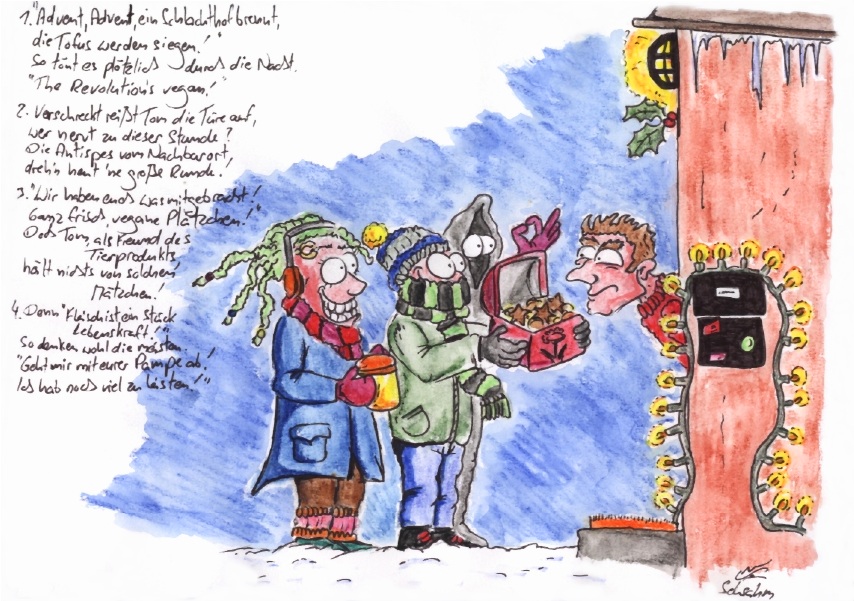 1. "Advent, Advent, ein Schlachthof brennt,
die Tofus werden siegen!"
So tönt es plötzlich durch die Nacht.
"The Revolution's vegan!"
2. Verschreckt reißt Tom die Türe auf,
wer nervt zu dieser Stunde?
Die Antispes vom Nachbarort,
dreh'n heut 'ne große Runde!
3. "Wir haben euch was mitgebracht!
Ganz frisch, vegane Plätzchen!"
Doch Tom, als Freund des
Tierprodukts,
hält nichts von solchen
Mätzchen!
4. Denn "Fleisch ist ein Stück
Lebenskraft!"
So denken wohl die meisten.
"Geht mir mit eurer Pampe ab!
Ich hab noch viel zu leisten!"